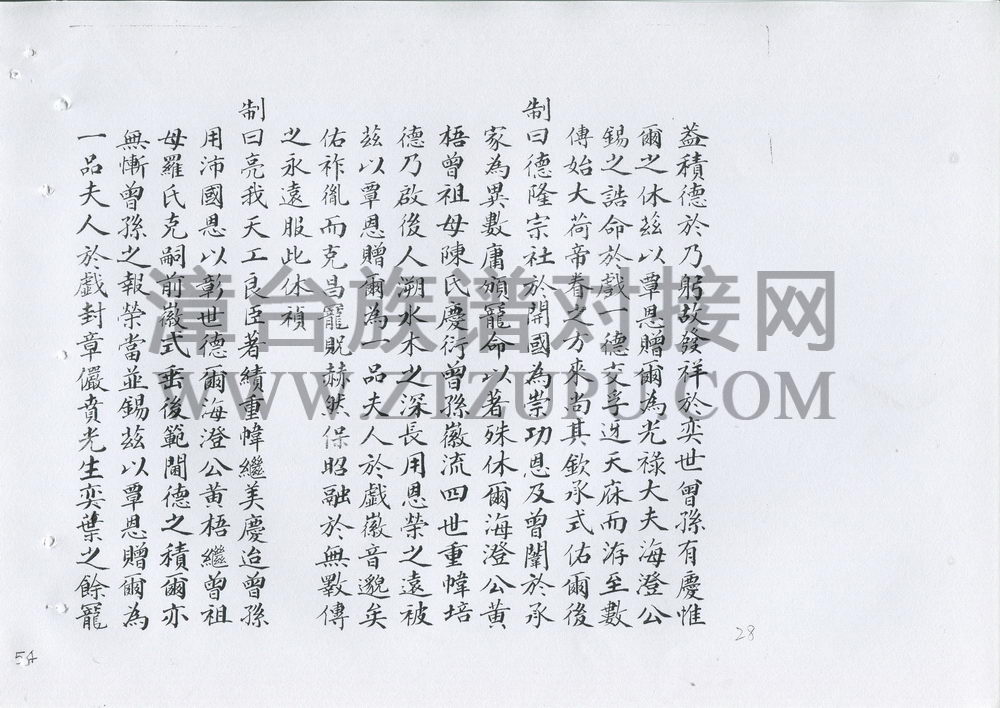 蓋積德於乃躬故發祥於奕世曾孫有慶惟
爾之休茲以覃恩贈爾為光祿大夫海澄公
錫之誥命於戲一德交孚迓天庥而洊至數
傳始大荷帝眷之方來尚其欽承式佑爾後
制曰德隆宗社於開國為崇功恩及曾闈於承
家為異數庸頒寵命以著殊休爾海澄公黃
梧曾祖母陳氏慶衍曾孫徽流四世重幃培
德乃啟後人溯水木之深長用恩榮之遠被
茲以覃恩贈爾為一品夫人於戲徽音邈矣
佑祚胤而克昌寵貺赫然保昭融於無斁傳
之永遠服此休禎
制曰亮我天工良臣著績重幃繼美慶迨曾孫
用沛國恩以彰世德爾海澄公黃梧繼曾祖
母羅氏克嗣前徽式垂後範閫德之積爾亦
無慚曾孫之報榮當並錫茲以覃恩贈爾為
一品夫人於戲封章儼賁光生奕葉之餘寵
28
54
漳台族谱对接网
WWW.ZTZUPU.COM